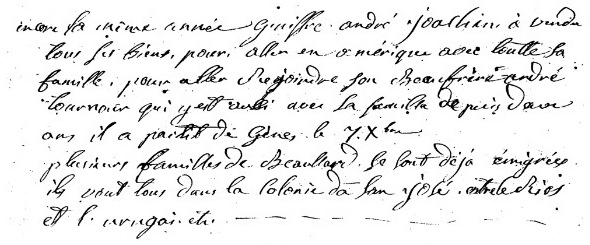 incore la même année Guiffre andré joachim à vendu
tous ses biens, pour aller en amérique avec toutte sa
famille, pour aller rejoindre son Beaufrère andré
tournoier qui y est aussi avec sa famille depuis deux
ans il a partit de Gênes le 7 Xbre
plusieurs familles de Beaulard se sont déja émigrées
ils vont tous dans la Colonie da San josé entrele Rios
et l'urugai etc.